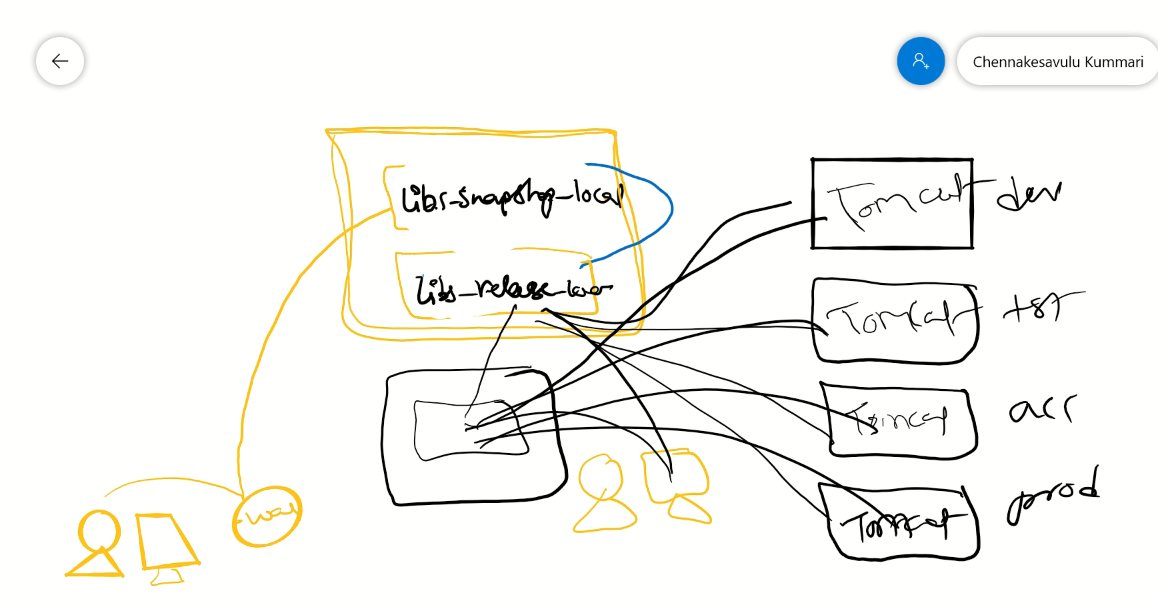 Chennakesavulu Kummari
libs_snapshop_local
libs_release_
Tomcat dev
Tomcat tst
Tomcat acc
Tomcat prod